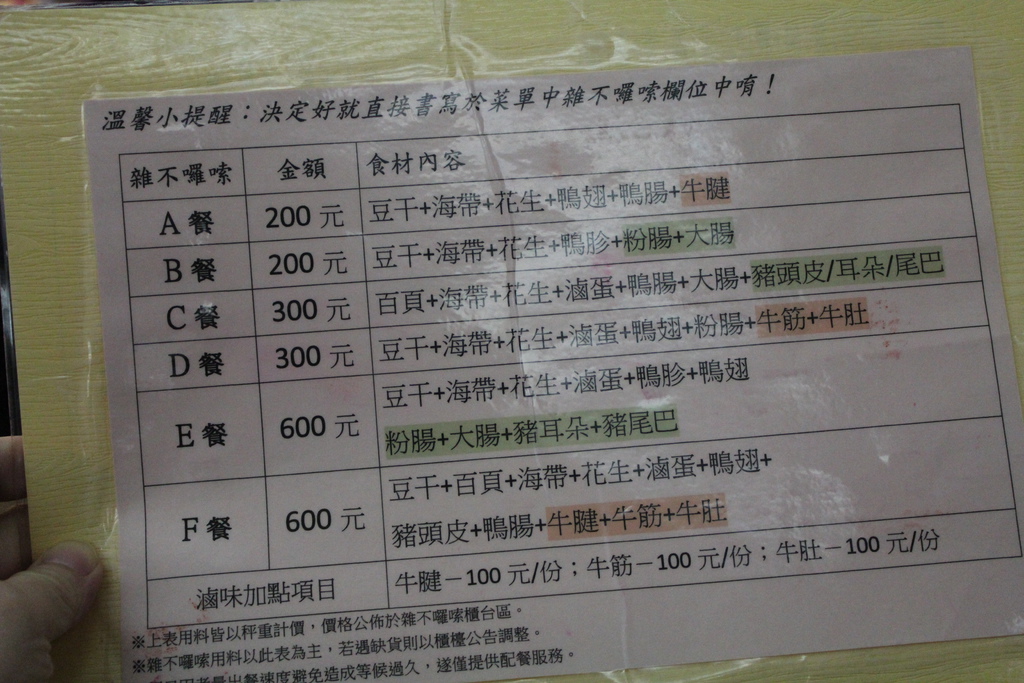 溫馨小提醒：決定好就直接書寫於菜單中雜不囉嗦欄位中唷！
雜不囉嗦 金額 食材內容
A 餐 200 元 豆干+海帶+花生+鴨翅+鴨腸+牛腱
B 餐 200 元 豆干+海帶+花生+鴨胗+粉腸+大腸
C 餐 300 元 百頁+海帶+花生+滷蛋+鴨腸+大腸+豬頭皮/耳朵/尾巴
D 餐 300 元 豆干+海帶+花生+滷蛋+鴨翅+粉腸+牛筋+牛肚
E 餐 600 元 豆干+海帶+花生+滷蛋+鴨胗+鴨翅
粉腸+大腸+豬耳朵+豬尾巴
F 餐 600 元 豆干+百頁+海帶+花生+滷蛋+鴨翅+
豬頭皮+鴨腸+牛腱+牛筋+牛肚
滷味加點項目 牛腱－100 元/份；牛筋－100 元/份；牛肚－100 元/份
※上表用料皆以秤重計價，價格公佈於雜不囉嗦櫃台區。
※雜不囉嗦用料以此表為主，若遇缺貨則以櫃檯公告調整。
考量出餐速度避免造成等候過久，遂僅提供配餐服務。